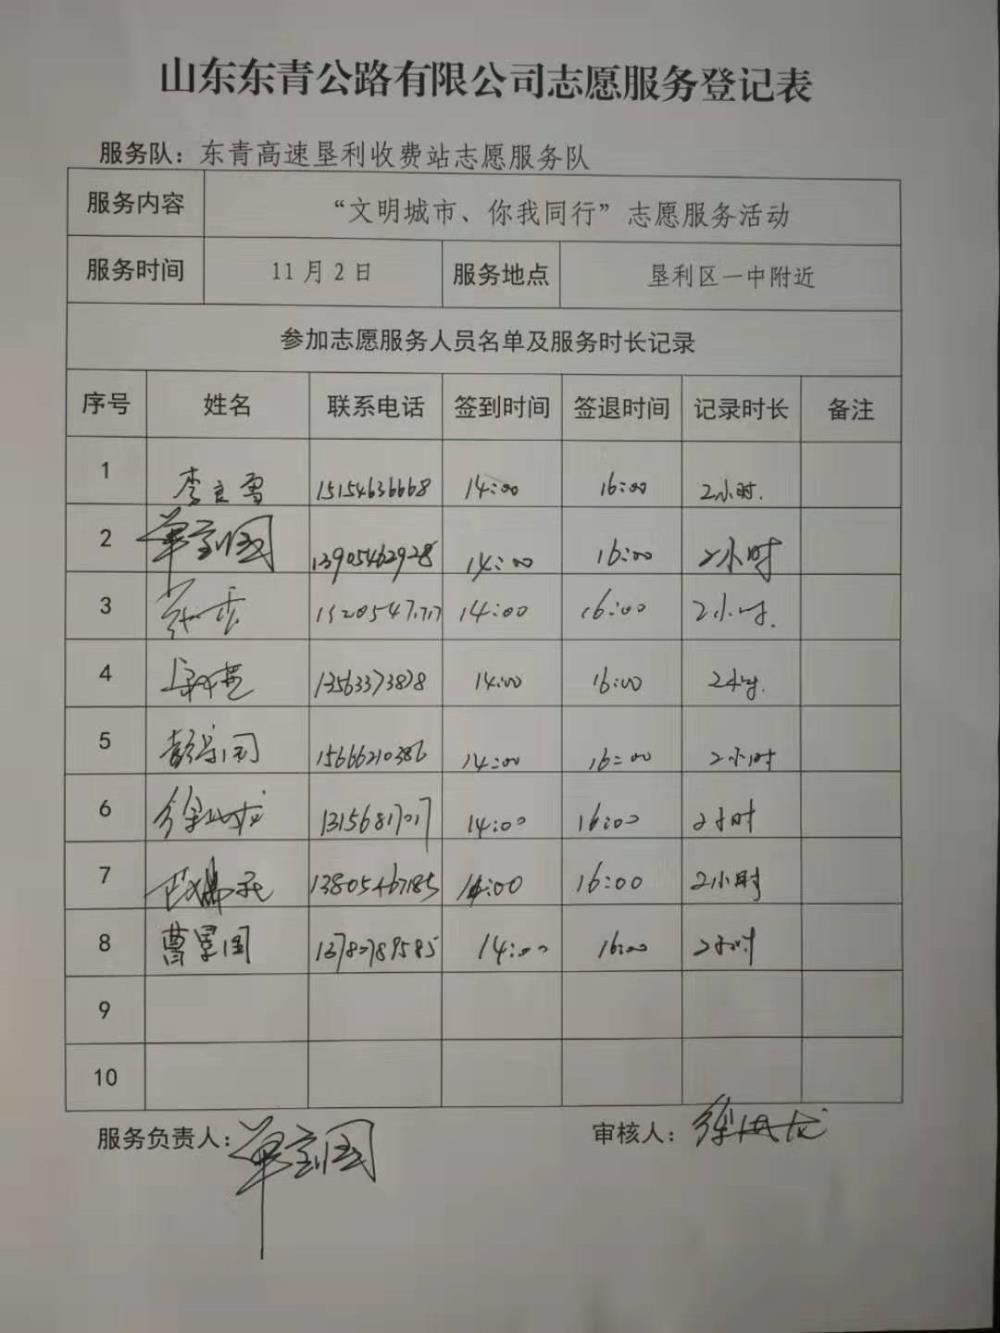 山东东青公路有限公司志愿服务登记表
服务队：东青高速垦利收费站志愿服务队
服务内容 “文明城市、你我同行”志愿服务活动
服务时间 11月2日 服务地点 垦利区一中附近
参加志愿服务人员名单及服务时长记录
序号 姓名 联系电话 签到时间 签退时间 记录时长 备注
1 15154636668 14:00 16:00 2小时.
2 13905462928 14:00 16:00 2小时
3 14:00 16:00 2小时.
4 13563373878 14:00 16:00 2小时.
5 15666210386 14:00 16:00 2小时
6 14:00 16:00 2小时
7 13805467185 14:00 16:00 2小时
8 曹景国 14:00 16:00 2小时
9
10
服务负责人：
审核人：